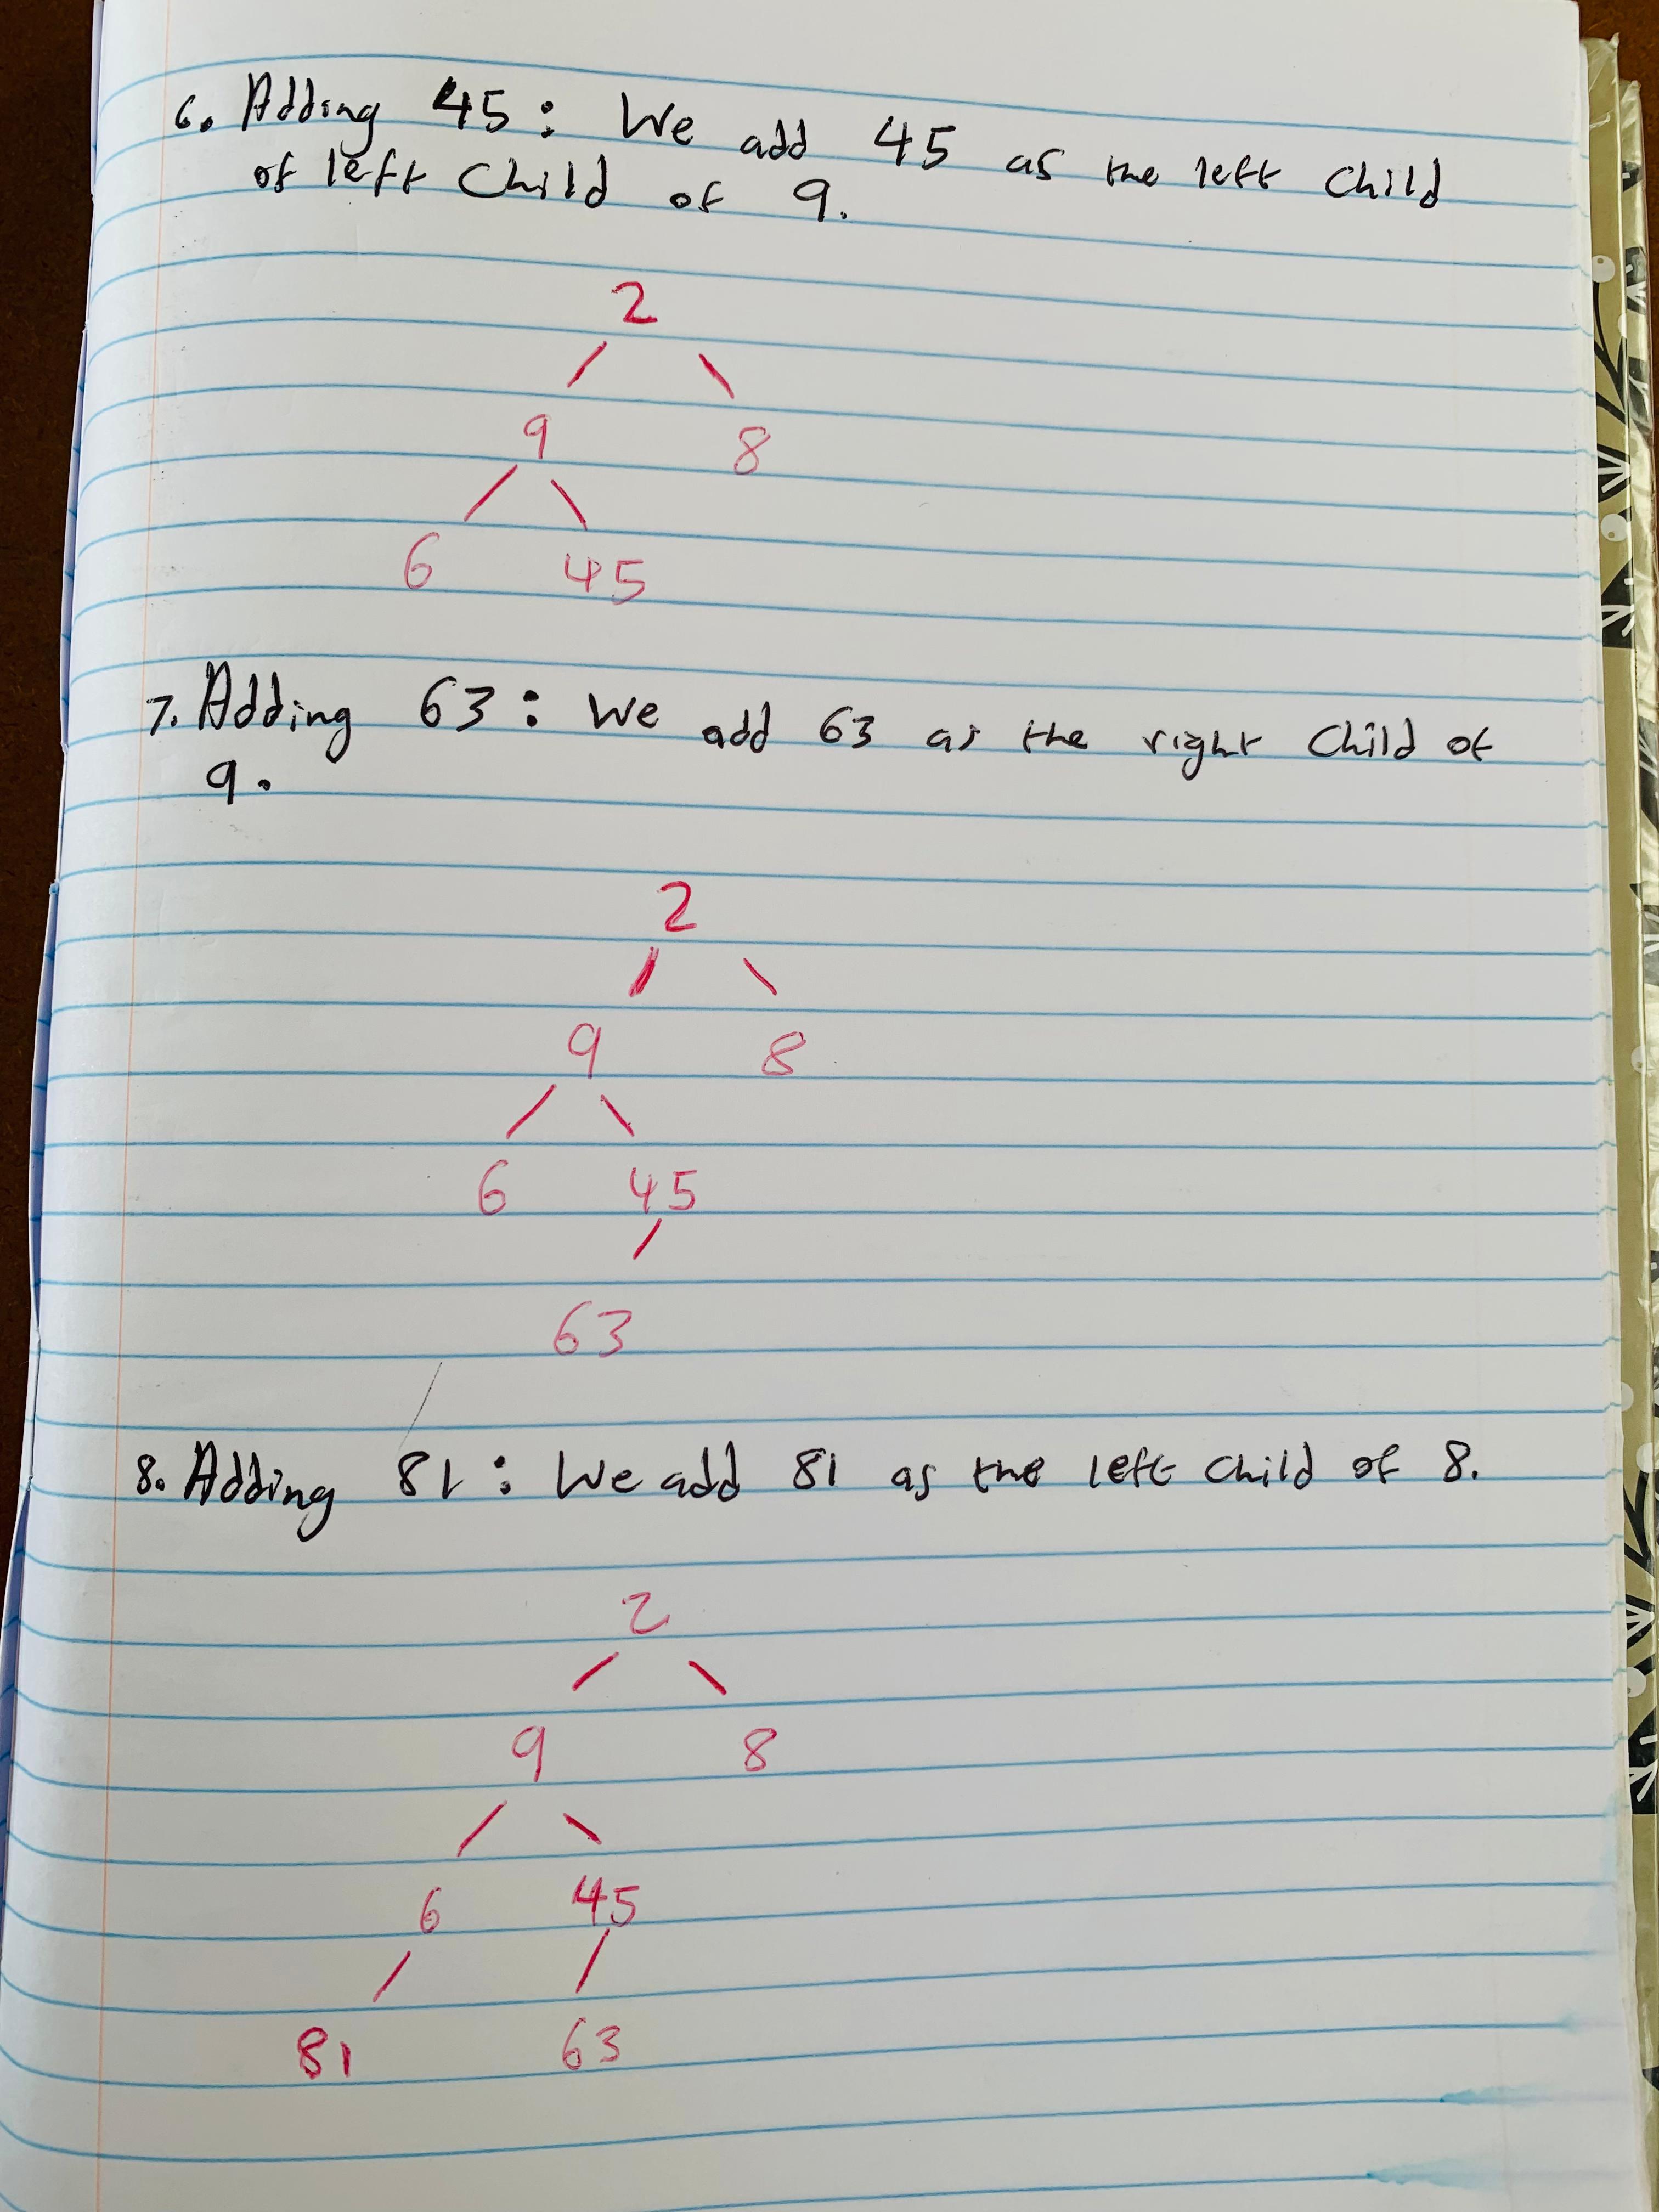 6. Adding 45: We add 45 as the left child
of left child of 9.
2
9 8
6 45
7. Adding 63: We add 63 as the right child of
9.
2
9 8
6 45
63
8. Adding 81: We add 81 as the left child of 8.
2
9 8
6 45
81 63